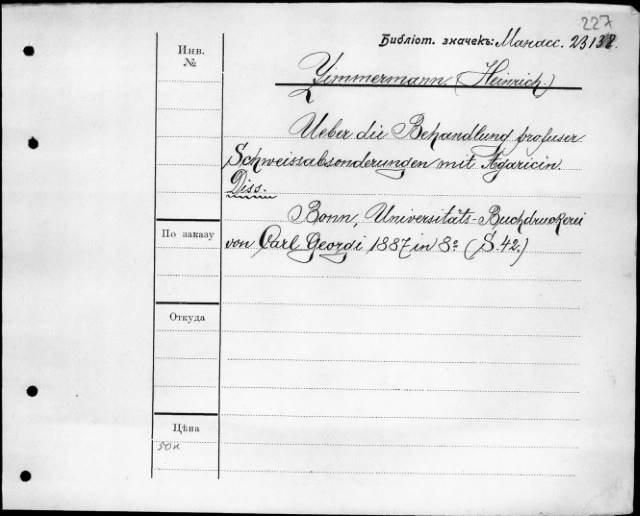 227
Библіот. значекъ: Манасс. 23132.
Инв.
№
Zimmermann (Heinrich)
Ueber die Behandlung profuser
Schweissabsonderungen mit Agaricin.
Diss.
Bonn, Universitäts-Buchdruckerei
По заказу
von Carl Georgi 1887 in 8° (S. 42.)
Откуда
Цѣна
50к